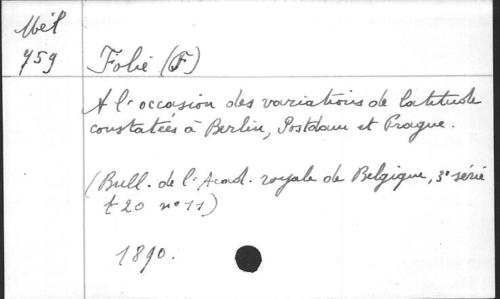 Mél
759
Folie (F)
A l'occasion des variations de latitude
constatées à Berlin, Postdam et Prague.
(Bull. de l'Acad. royale de Belgique, 3e série
t 20 n° 11)
1890.